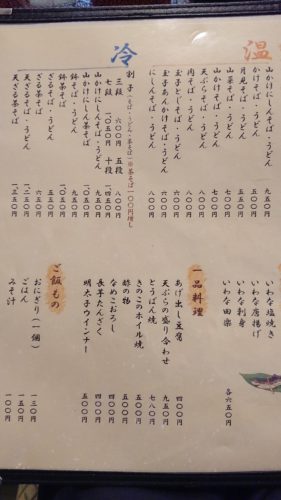 温
山かけにしんそば・うどん 九五〇円
かけそば・うどん 五〇〇円
月見そば・うどん 五五〇円
山菜そば・うどん 七〇〇円
山かけそば・うどん 七〇〇円
天ぷらそば・うどん 八〇〇円
肉そば・うどん 八〇〇円
玉子とじそば・うどん 六〇〇円
玉子あんかけそば・うどん 六〇〇円
にしんそば・うどん 八〇〇円
冷
割子(そば・うどん・茶そば)※茶そば一〇〇円増し
三段 六〇〇円 五段 八〇〇円
七段 一、〇五〇円 十段 一、四五〇円
山かけにしん茶そば 一、〇五〇円
山かけにしんそば・うどん 九五〇円
鉢そば・うどん 九五〇円
鉢茶そば 一、〇五〇円
ざるそば・うどん 五五〇円
ざる茶そば 六五〇円
天ざるそば・うどん 一、二五〇円
天ざる茶そば 一、三五〇円
いわな塩焼き
いわな唐揚げ
いわな刺身
いわな田楽
各六五〇円
一品料理
あげ出し豆腐 四〇〇円
天ぷらの盛り合わせ 九五〇円
とうばん焼 七八〇円
きのこのホイル焼 五〇〇円
酢の物 四〇〇円
なめこおろし 四〇〇円
長芋たんざく 四〇〇円
明太子ウインナー 五〇〇円
ご飯もの
おにぎり(一個) 一三〇円
ごはん 一五〇円
みそ汁 一〇〇円